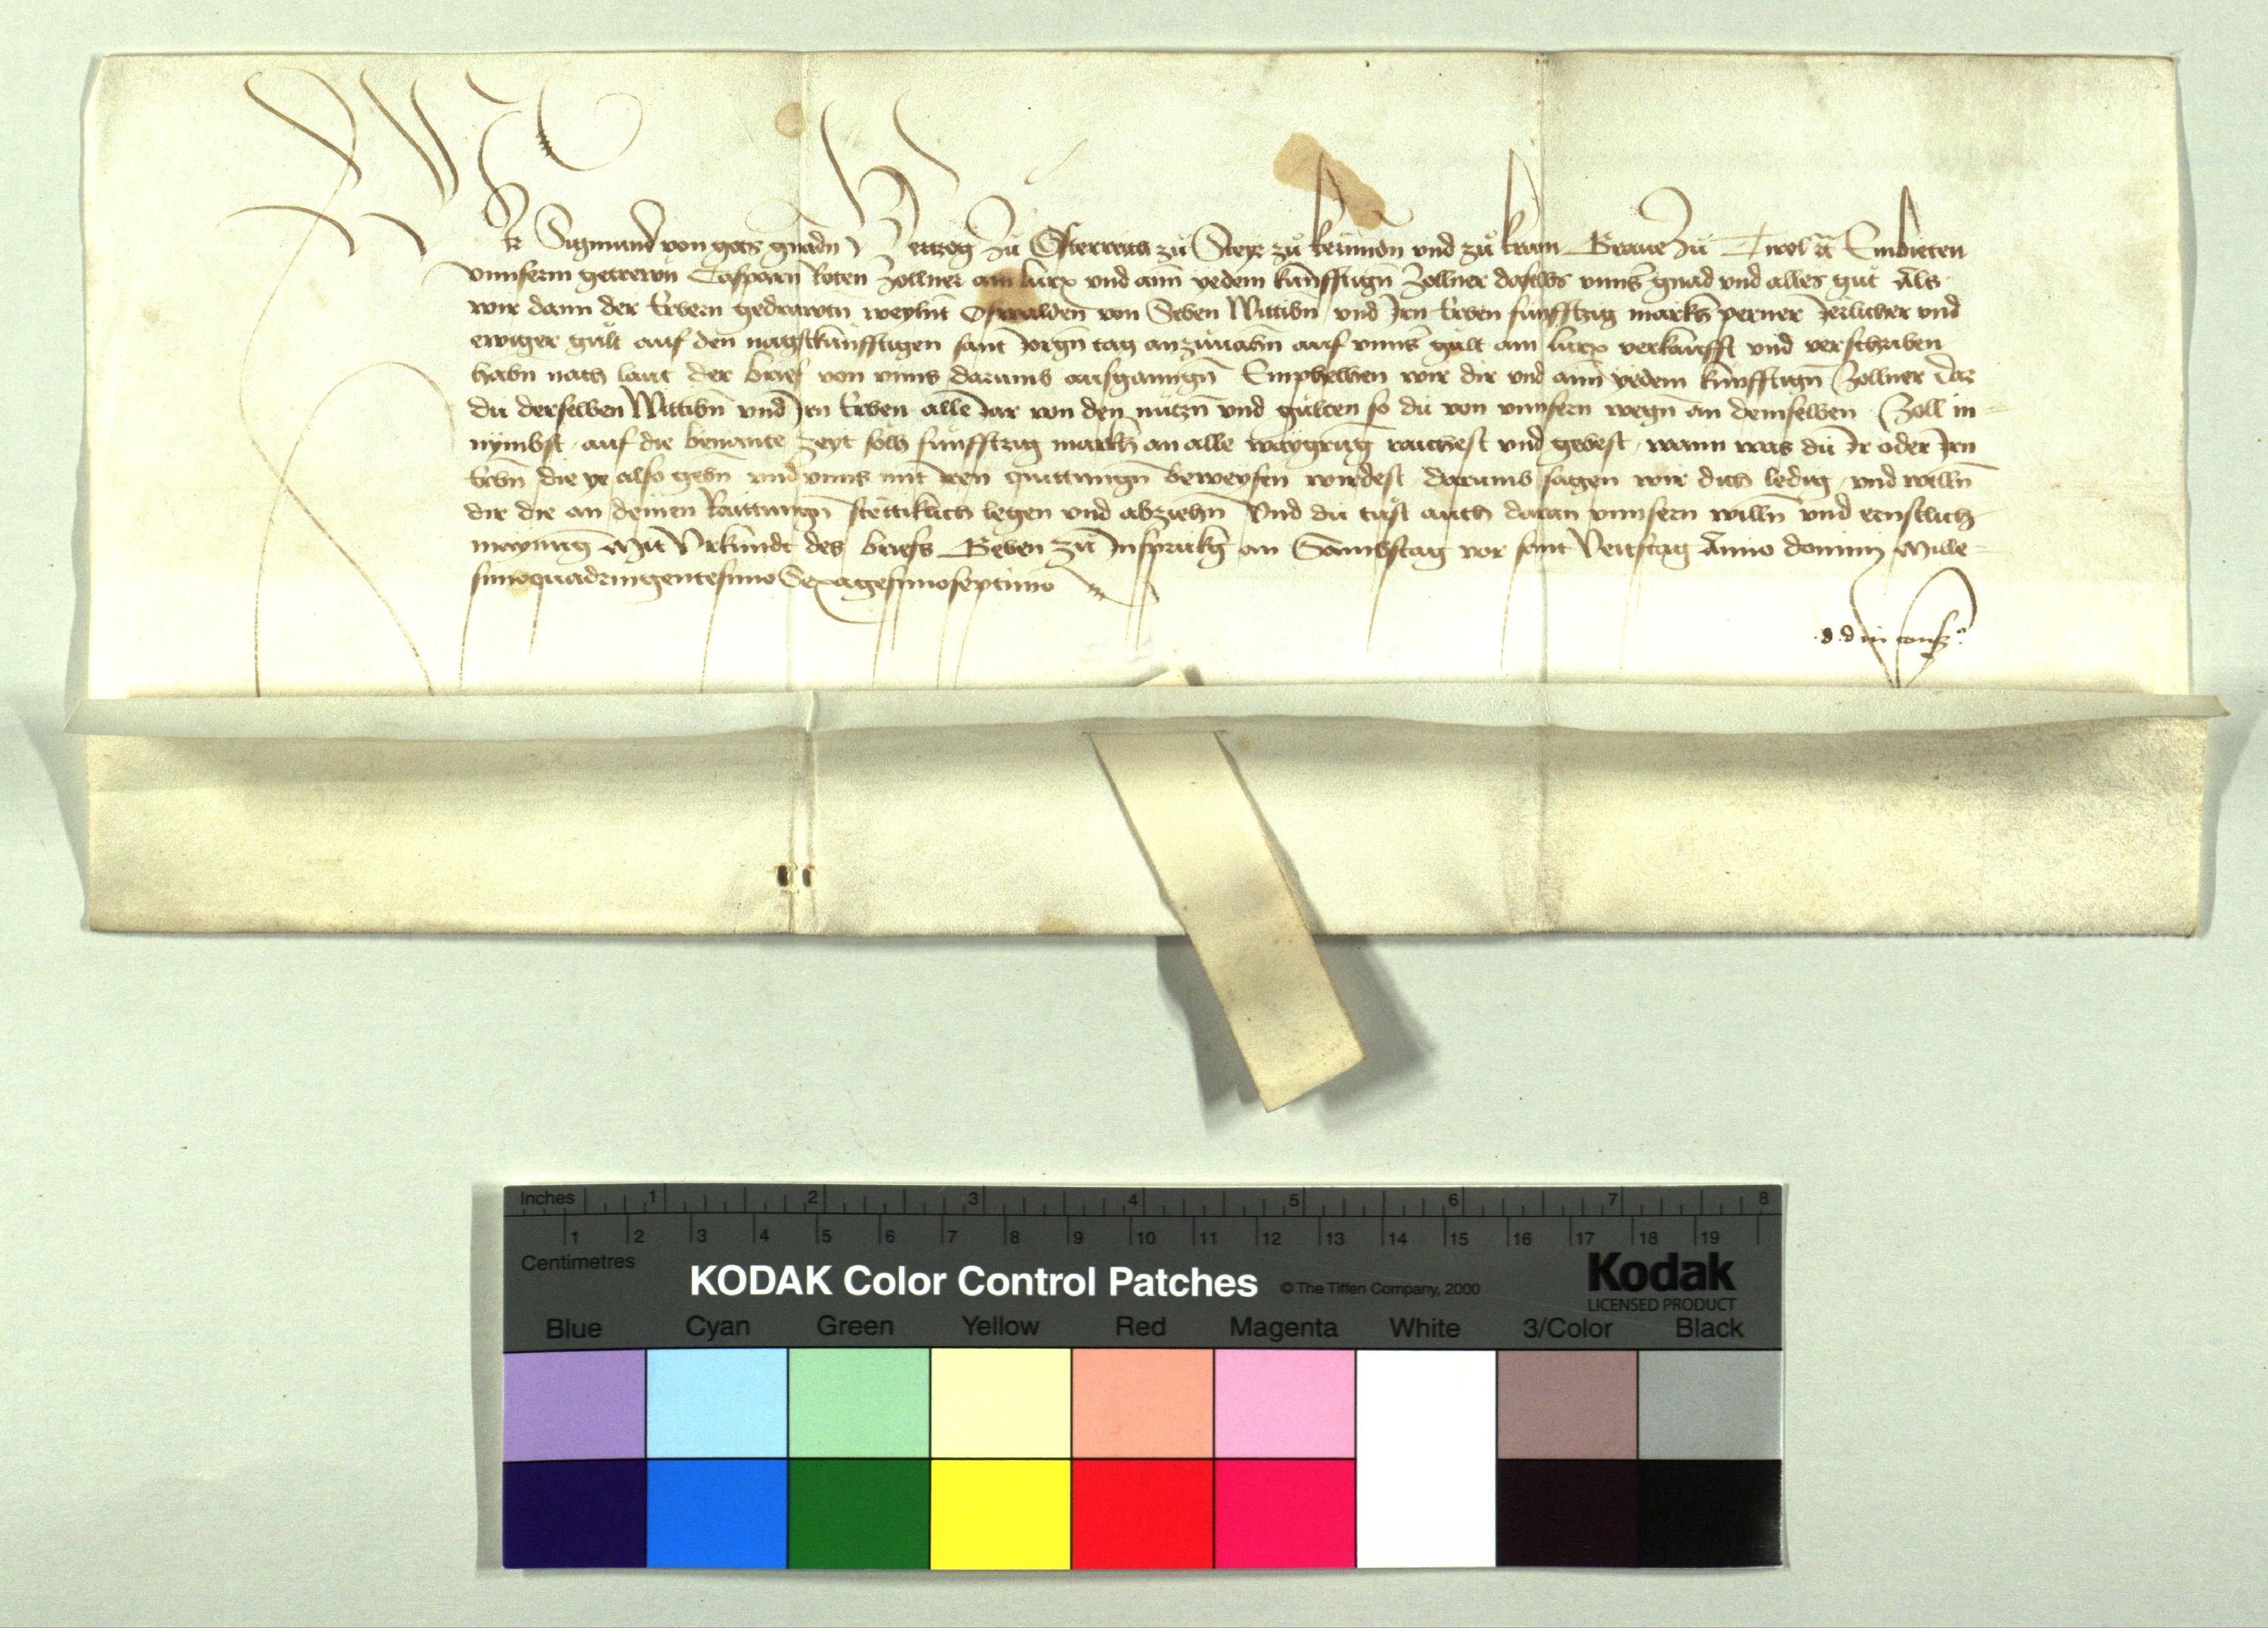 Wir Sigmund von gots gnadn Hertzog zů Österreich zů Steyr zů kernndn vnd zů krain Graue zů Tirol etc̃ Embieten
vnnserm getrewn Casparn Roten Zollner am lueg vnd aim yedem kunfftign Zollner daselbs vnns̃ gnad vnd alles gůt Als
wir dann der Erbern gedrawtn weylnt Oswalden von Seben Wittibn vnd Irn Erben funfftzig markh perner Jerlicher vnd
ewiger gült auf den nagstkunfftigen sant Jorgn tag anzuuahn auf vnns̃ gült am lueg verkaufft vnd verschriben
habn nach laut der brief von vnns darumb ausgangn̄ Emphelhen wir dir vnd aim yedem kunfftign Zollner daz
du derselben Wittibn vnd Irn Erben alle Jar von den nutzn vnd gülten so du von vnnsern wegn an demselben Zoll in=
nymbst auf die benante zeyt solh funfftzig markh an alle waygrūg raichest vnd gebest wann was du Ir oder Irn
Erbn die ye also gebn vnd vnns mit iren quittungn beweysen wirdest darumb sagen wir dich ledig vnd welln̄
dir die an deinen Raittungn̄ stettiklich legen vnd abziehn̄ Vnd du tust auch daran vnnsern willn̄ vnd ernstlich
maynung Mit Vrkundt des briefs Geben zu Insprukg an Sambstag vor sant Veitstag Anno domini Mille=
simoquadringentesimo Sexagesimoseptimo
.d.d. in cons̊.
Inches 1 2 3 4 5 6 7 8
1 2 3 4 5 6 7 8 9 10 11 12 13 14 15 16 17 18 19
Centimetres
KODAK Color Control Patches © The Tiffen Company, 2000 Kodak
LICENSED PRODUCT
Blue Cyan Green Yellow Red Magenta White 3/Color Black